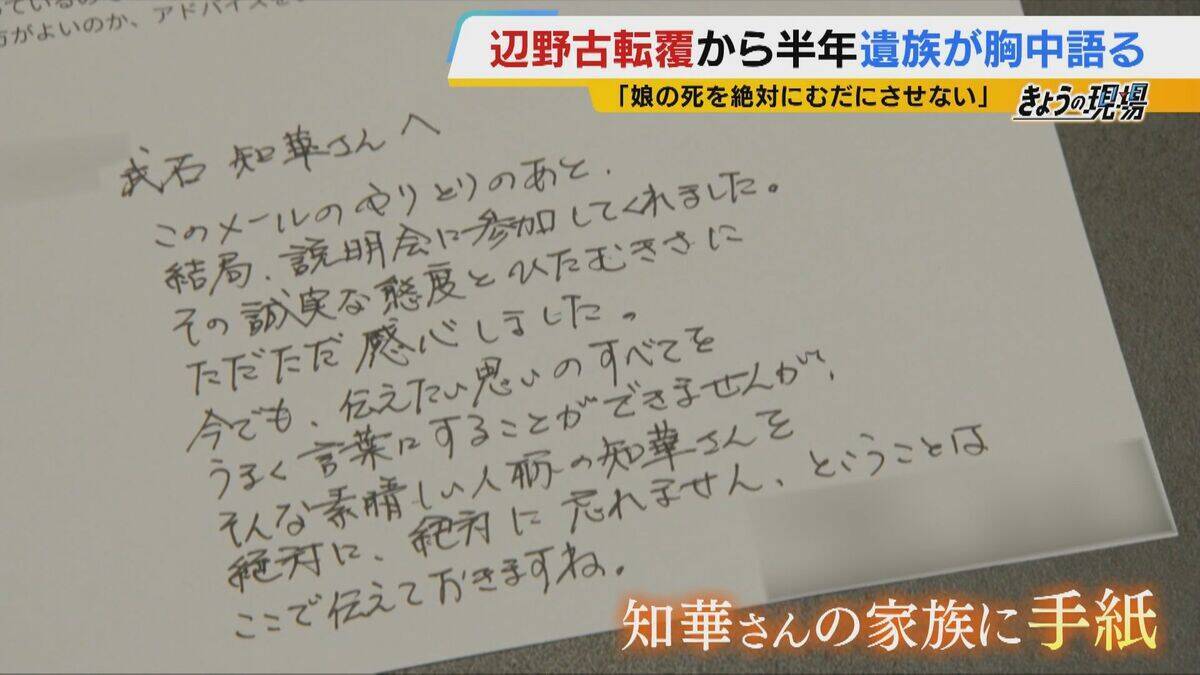 ているので
方がよいのか、アドバイスを
辺野古転覆から半年遺族が胸中語る
「娘の死を絶対にむだにさせない」
きょうの現場
武石 知華さんへ
このメールのやりとりのあと、
結局、説明会に参加してくれました。
その誠実な態度とひたむきさに
ただただ感心しました。
今でも、伝えたい思いのすべてを
うまく言葉にすることができませんが、
そんな素晴しい人柄の知華さんを
絶対に、絶対に忘れません、ということは
ここで伝えておきますね。
知華さんの家族に手紙